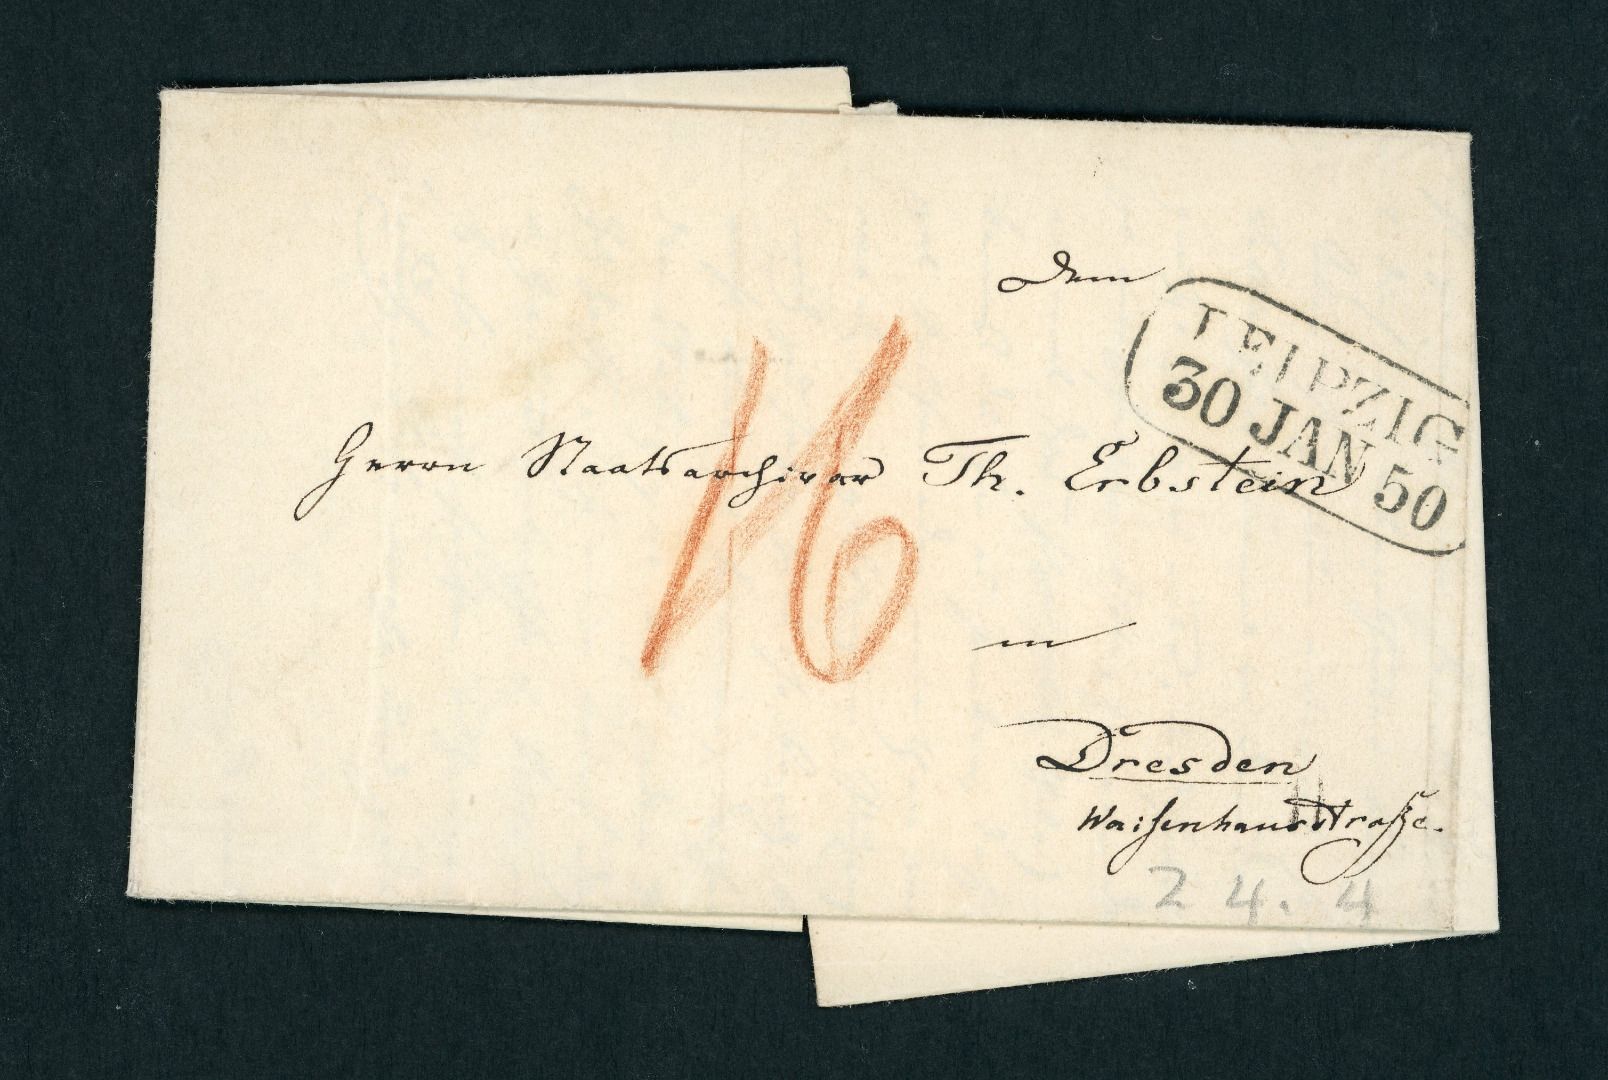 Dem
LEIPZIG
30 JAN 50
Herrn Staatsarchivar Th. Erbstein
16
in
Dresden
Waisenhausstraße.
24.4